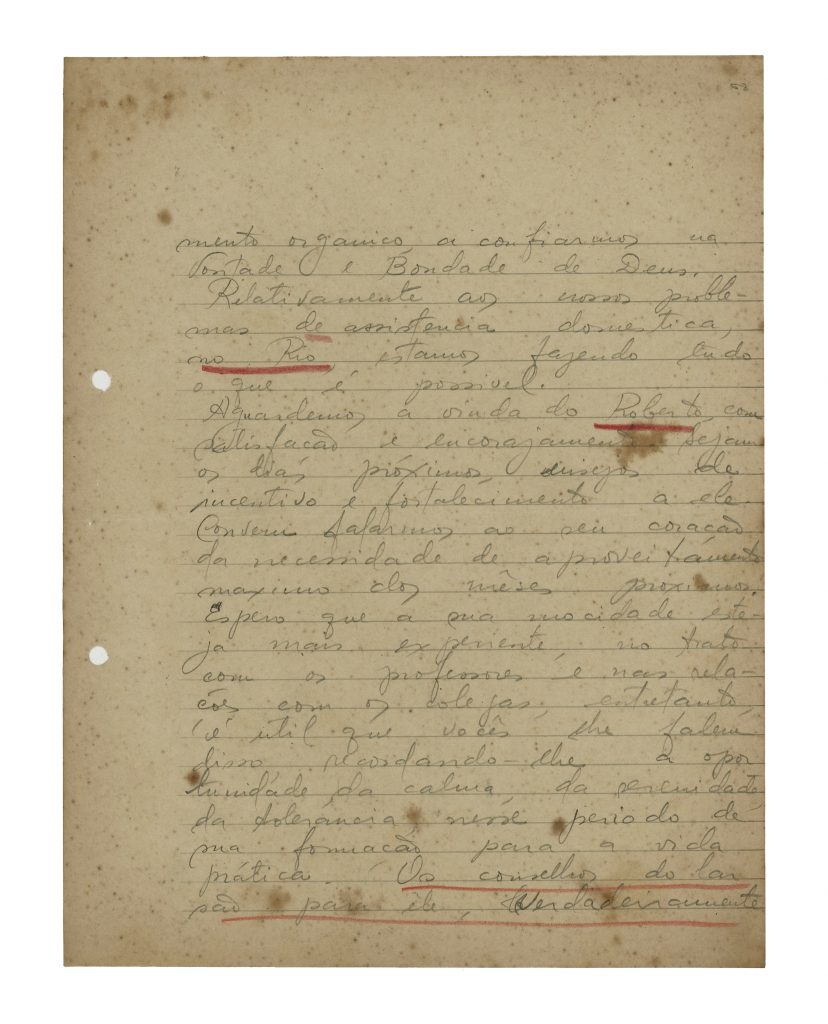 mento organico, a confiarmos na
Vontade e Bondade de Deus.
Relativamente aos nossos proble-
mas de assistencia domestica,
no Rio, estamos fazendo tudo
o que é possivel.
Aguardemos a vinda do Roberto, com
satisfação e encorajamento. Sejam
os dias próximos, ensejos de
incentivo e fortalecimento a ele.
Convem falarmos ao seu coração
da necessidade de aproveitamento
maximo dos mêses proximos.
Espero que a sua mocidade este-
ja mais experiente, no trato
com os professores e nas rela-
ções com os colegas, entretanto,
é util que vocês lhe falem
disso recordando-lhe a opor
tunidade da calma, da serenidade,
da tolerância, nesse periodo de
sua formação para a vida
prática. Os conselhos do lar
são para êle, verdadeiramente